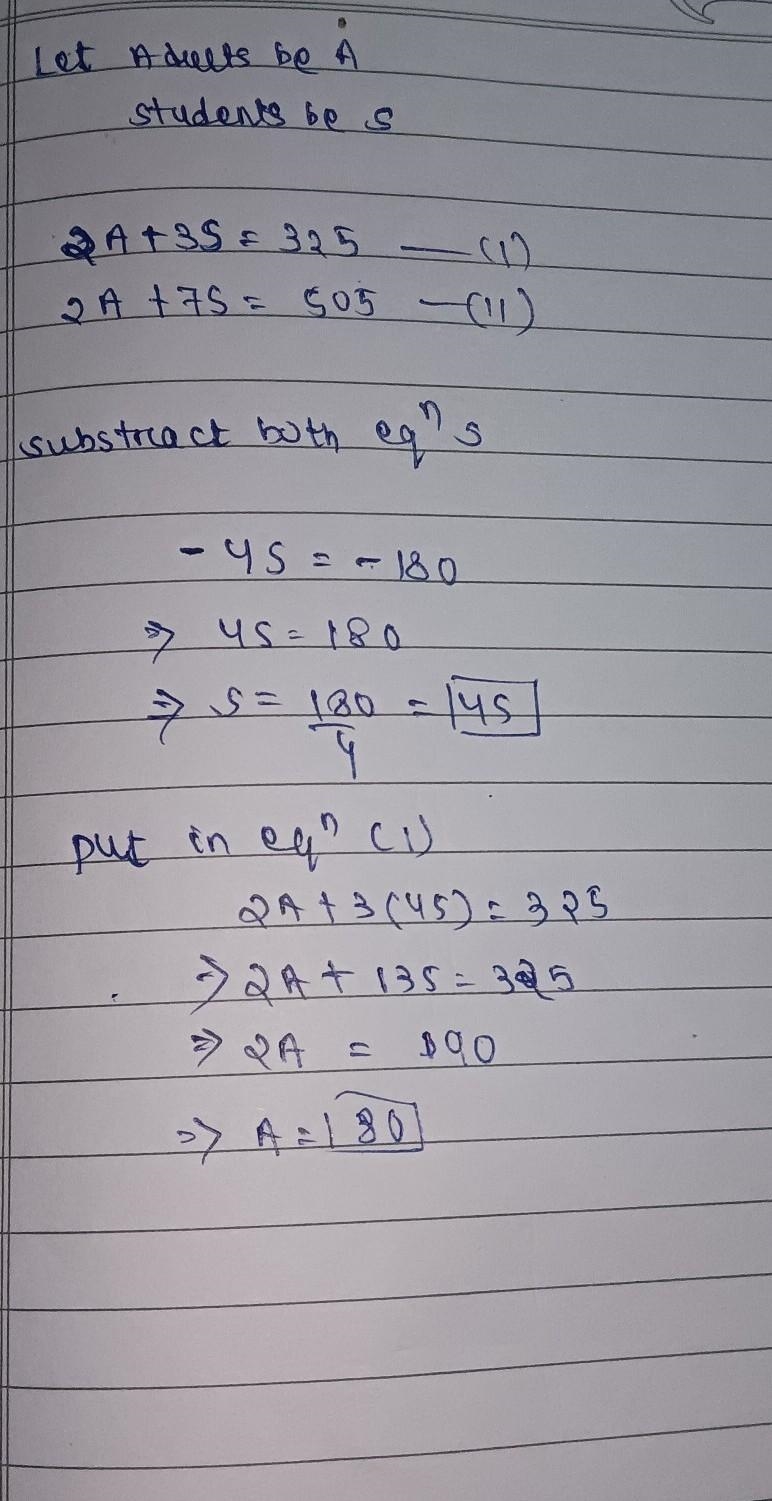 Let Adults be A
students be S
2A + 3S = 325 — (I)
2A + 7S = 505 — (II)
substract both eqⁿs
- 4S = - 180
⇒ 4S = 180
⇒ S = 180/4 = 45
put in eqⁿ (I)
2A + 3(45) = 325
⇒ 2A + 135 = 325
⇒ 2A = 190
⇒ A = 80